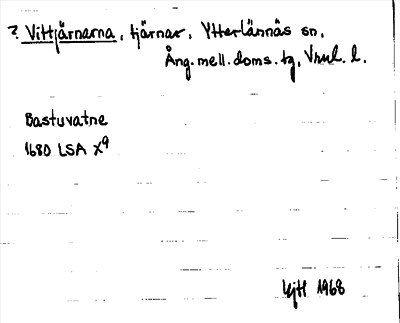 ? Vittjärnarna, tjärnar, Ytterlännäs sn,
Ång. mell. doms. tg, Vnul. l.
Bastuvatne
1680 LSA X9
1968